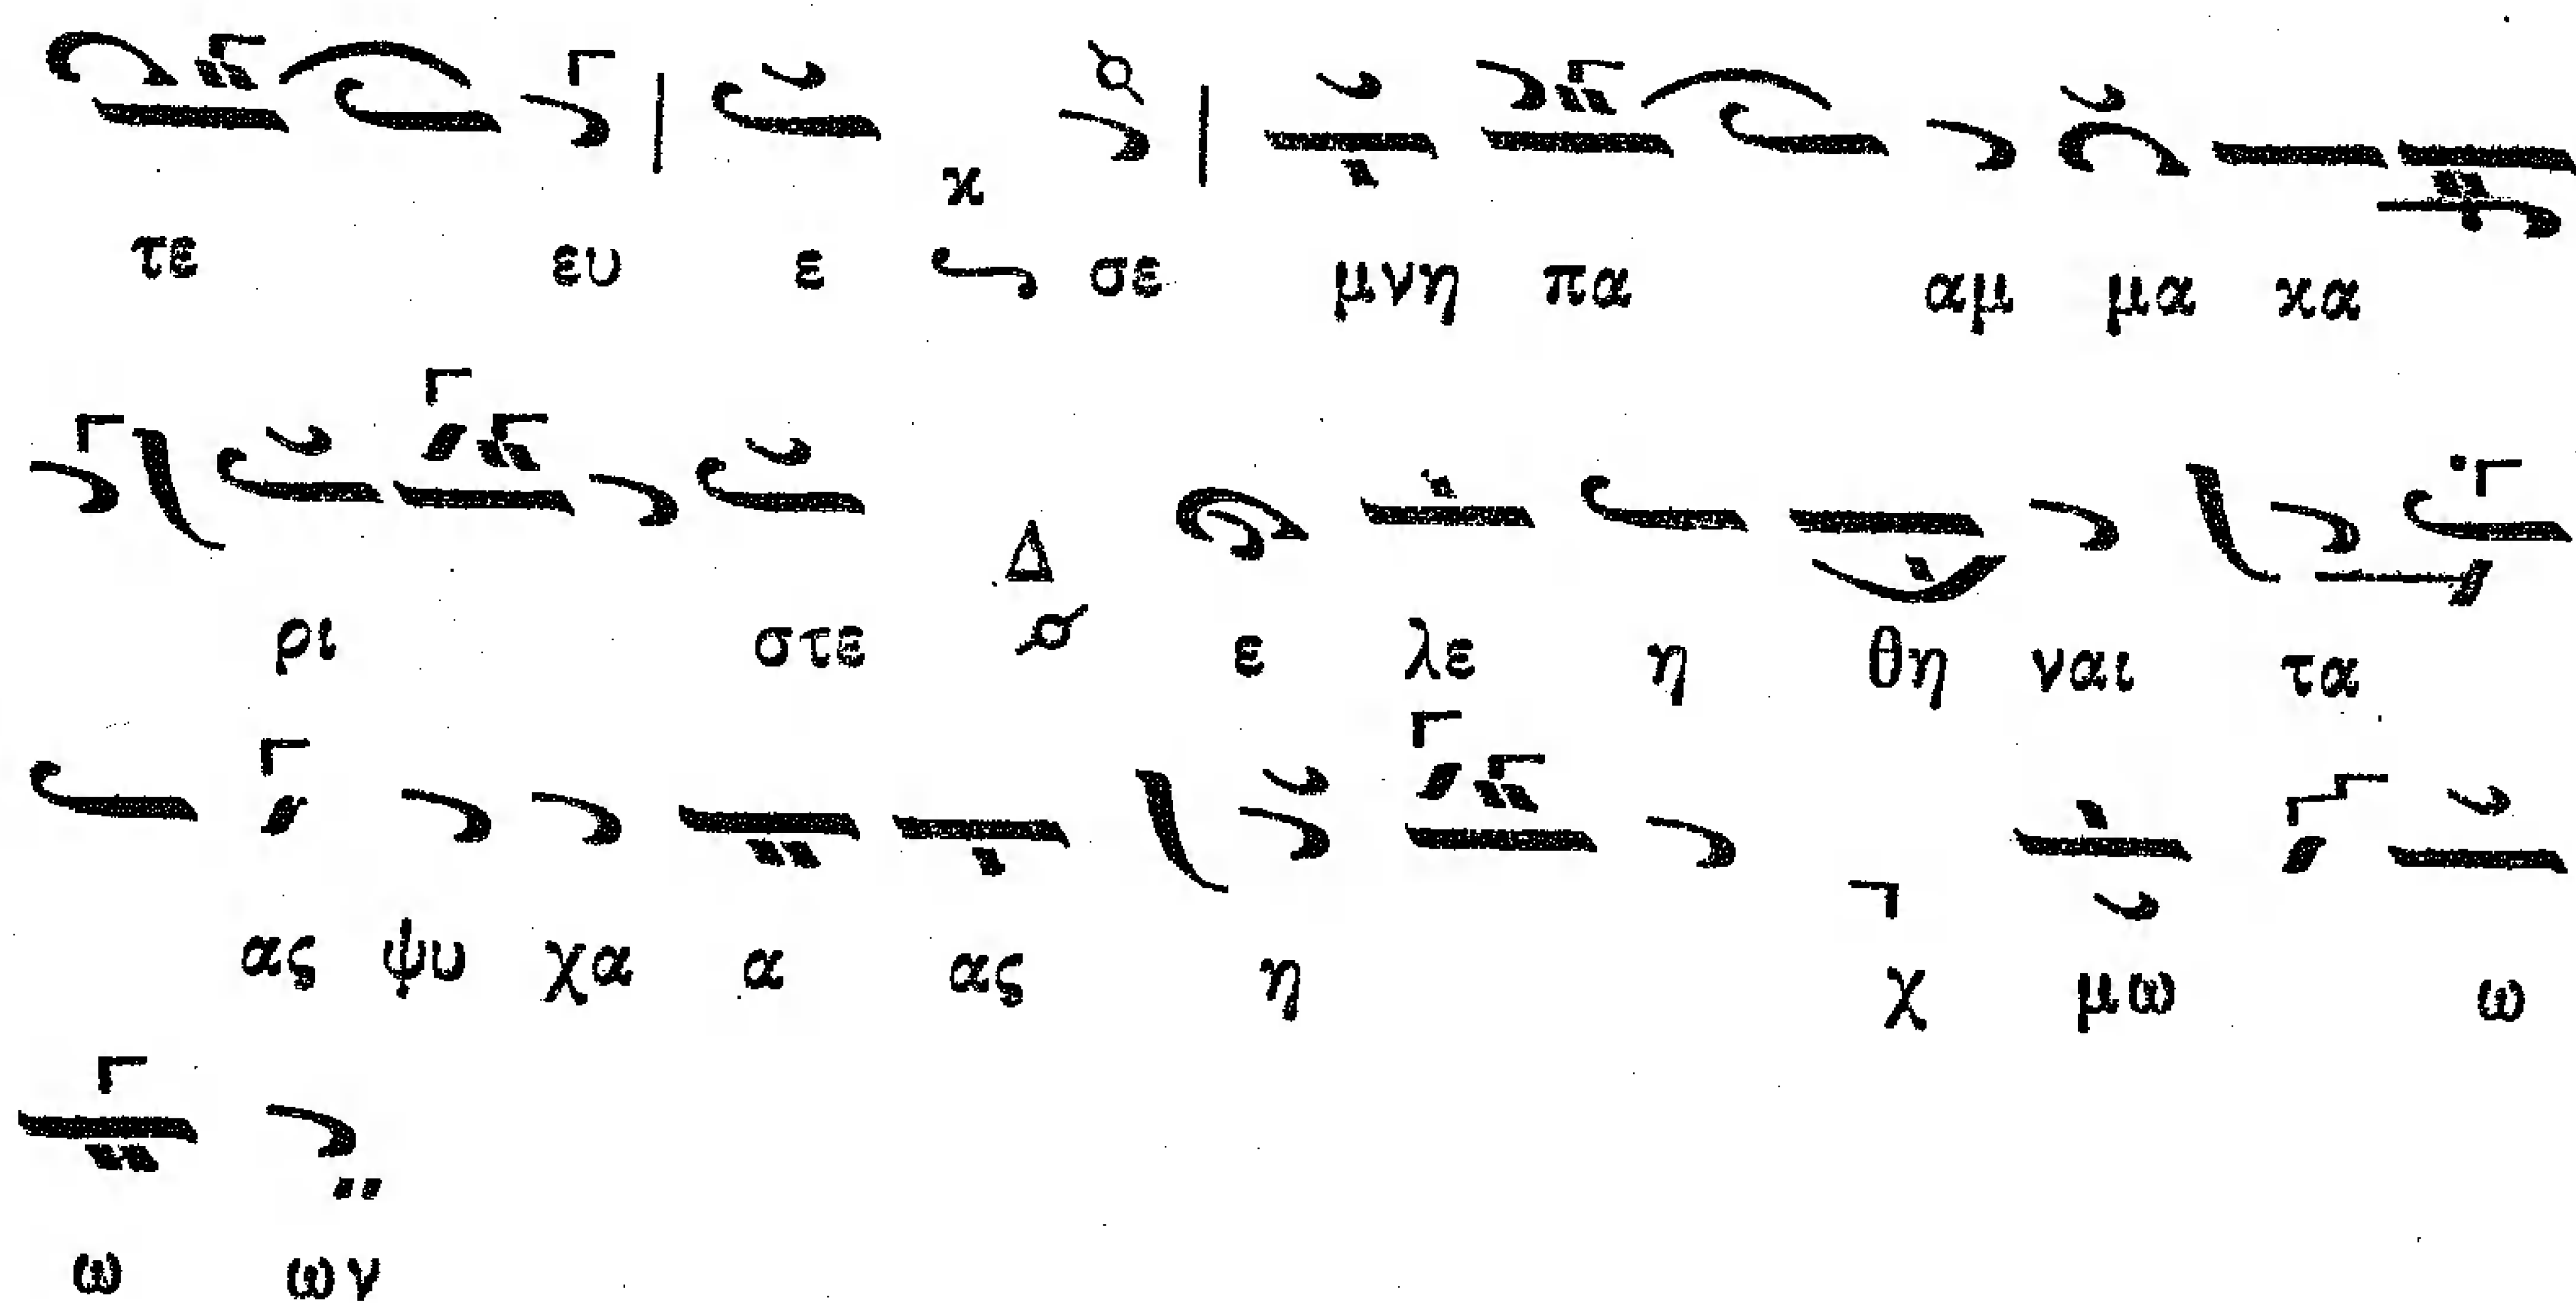 τε ευ ε κ σε μνη πα αμ μα κα
ρι στε Δ ε λε η θη ναι τα
ας ψυ χα α ας η χ μω ω
ω ων